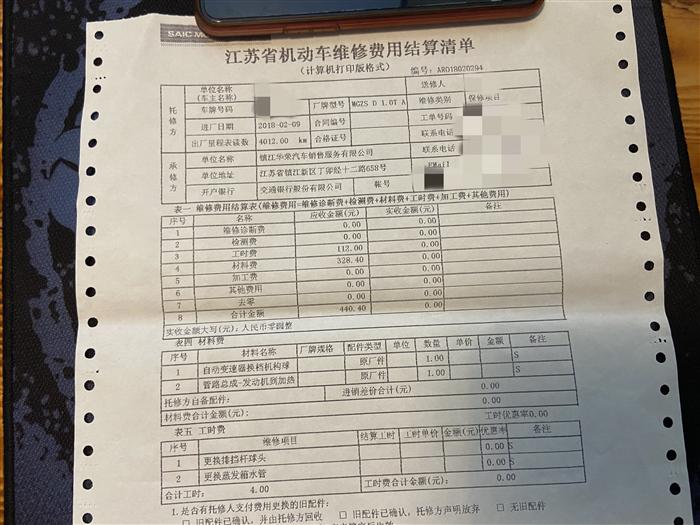 SAIC MO
江苏省机动车维修费用结算清单
（计算机打印版格式） 编号：ARO18020294
托修方 单位名称（车主名称） 送修人
车牌号码 厂牌型号 MGZS D 1.0T A 维修类别 保修项目
进厂日期 2018-02-09 合同编号 工单号码
出厂里程表读数 4012.00 km 合格证号 联系电话
承修方 单位名称 镇江华荣汽车销售服务有限公司 联系电话
单位地址 江苏省镇江新区丁卯经十二路658号 EMail
开户银行 交通银行股份有限公司 帐号
表一 维修费用结算表（维修费用=维修诊断费+检测费+材料费+工时费+加工费+其他费用）
序号 名称 应收金额(元) 实收金额(元) 备注
1 维修诊断费 0.00 0.00
2 检测费 0.00 0.00
3 工时费 112.00 0.00
4 材料费 328.40 0.00
5 加工费 0.00 0.00
6 其他费用 0.00 0.00
7 去零 0.00 0.00
8 合计金额 440.40 0.00
实收金额大写(元)：人民币零圆整
表四 材料费
序号 材料名称 厂牌规格 配件类型 单位 数量 单价 金额 备注
1 自动变速器换档机构球 原厂件 1.00 S
2 管路总成-发动机到加热 原厂件 1.00 S
托修方自备配件： 进销差价合计(元) 0.00
材料费合计金额(元)： 0.00
工时优惠率0.00
表五 工时费
序号 维修项目 结算工时 工时单价 金额(元) 优惠率 备注
1 更换排挡杆球头 0.00 S
2 更换蒸发箱水管 0.00 S
合计工时： 4.00 工时费合计金额(元)： 0.00
1.是否有托修人支付费用更换的旧配件：
□ 旧配件已确认，并由托修方回收 □ 旧配件已确认，托修方声明放弃 □ 无旧配件